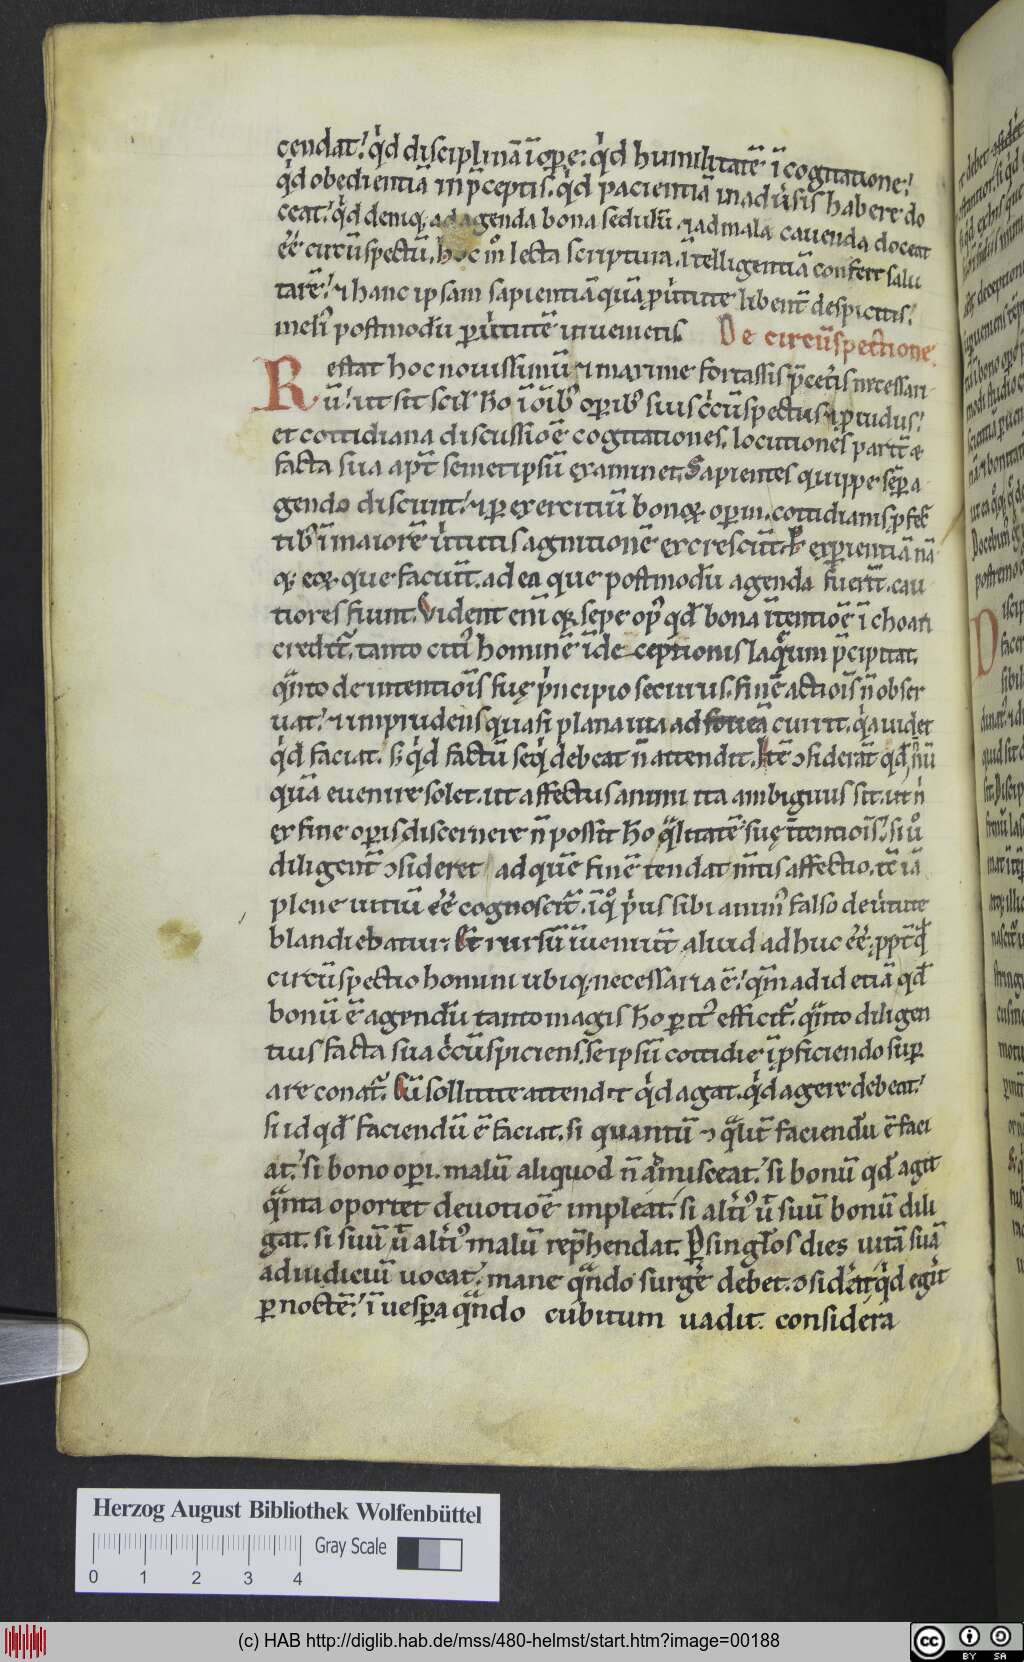 cendat. q̇d disciplinā ī oꝑe. q̇d humilitatē ī cogitatione.
q̇d obędientiā in p̄ceptis. q̇d pacientiā in adu̇sis habere do
ceat. q̇d deniq; ad agenda bona sedulū. ⁊ ad mala cauenda doceat
eē circūspectū. hoc m̊ lecta scriptura. ītelligentiā confert salu
tarē. ⁊ hanc ipsam sapientiā quā ꝑ u̇tute libent̄ despicitis.
meliꝰ postmodū ꝑ u̇tutē inuenietis. De circūspectione.
Restat hoc nouissimū ⁊ maxime fortassis p̄cet̄is necessari
ū. ut sit scił hō ī oīb; oꝑib; suis c̊cūspectus ⁊ ꝓuidus.
et cottidiana discussiōe cogitationes. locutiones parit̄ &
facta sua apt̄ semetipsū examinet. Sapientes quippe sēꝑ a
gendo discunt. ⁊ ꝑ exercitiū bonoꝝ oꝑum. cottidianis ꝓfec̄
tib; ī maiorē u̇tutis agnitionē excresciūt. & exꝑientiā nā
q; eoꝝ que faciūt. ad ea que postmodū agenda fuerīt. cau
tiores fiunt. Vident enī q; sepe opꝰ qđ bona ītentiōe ī choari
credit̄. tanto citiꝰ hominē ī deceptionis laq̄um p̄cipitat.
qͣnto de intentiōis suę p̍ncipio securus. finē actiōis n̄ obser
uat. ⁊ imprudens quasi plana uia. ad foueā currit. q̍a uidet
q̇d faciat. s; q̇d factū seq̍ debeat n̄ attendit. Itē ↄsiderat̄ qđ nūn
quā euenire solet. ut affectus animi ita ambiguus sit. ut n̍
ex fine oꝑis discernere n̄ possit hō qͣlitatē suę ītentiōis. si ů
diligent̄ ↄsideret ad quē finē tendat mt̄is affectio. tē iā
plene uitiū eē cognoscit̄. ī q̊ p̍us sibi animꝰ falso de u̇tute
blandiebatur. Et rursū īuenirit̄ aliud adhuc eē. ꝓpt̄ qđ
circūspectio homini ubiq; necessaria ē. qm̄ ad id etiā qđ
bonū ē agendū tanto magis hō ꝑitꝰ efficit̄. qͣnto diligen
tius facta sua c̊cūspiciens. se ipsū cottidie ī ꝓficiendo suꝑ
are conat̄. Cū sollicite attendit q̇d agat. q̇d agere debeat.
si id qđ faciendū ē faciat. si quantū ⁊ qͣlit̄ faciendū ē faci
at. si bono oꝑi. malū aliquod n̄ amisceat. si bonū qđ agit
qͣnta oportet deuotiōe impleat. si alt̍iꝰ ū suū bonū dili
gat. si suū ū alt̍iꝰ malū rep̄hendat. Ꝑ singłos dies uitā suā
ad iudiciū uocat. mane qͣndo surgē debet. ↄsid̄at q̇d egit
ꝑ noctē. ī uesꝑa qͣndo cubitum uadit. considera
Herzog August Bibliothek Wolfenbüttel
Gray Scale
0 1 2 3 4
(c) HAB http://diglib.hab.de/mss/480-helmst/start.htm?image=00188
cc BY SA